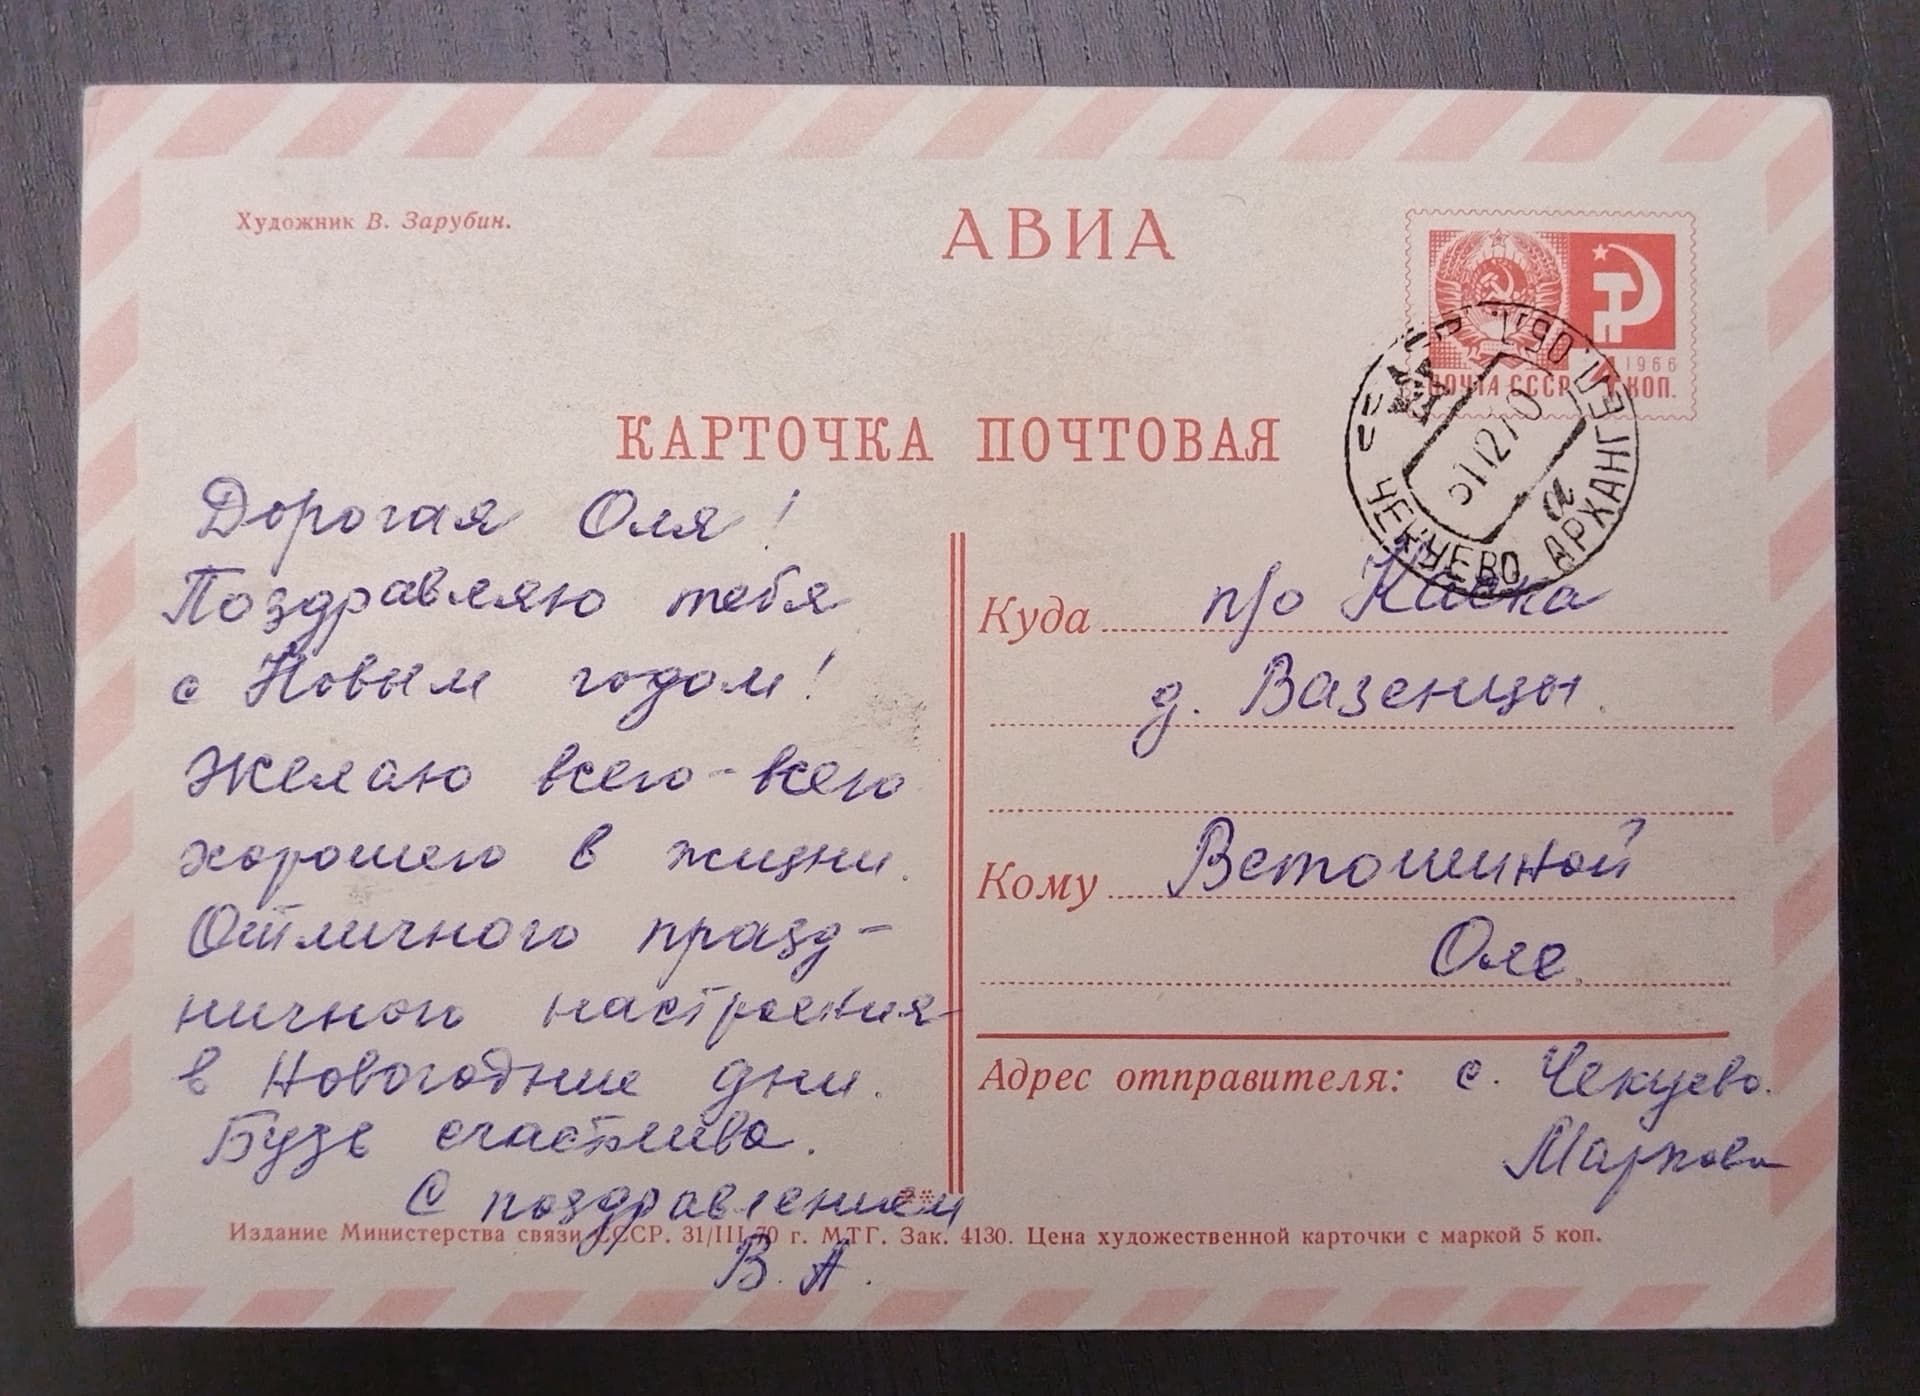 Художник В. Зарубин.
АВИА
1966
ПОЧТА СССР 4 КОП.
СССР
ЧЕКУЕВО АРХАНГЕЛ. ОБЛ.
311270
а
КАРТОЧКА ПОЧТОВАЯ
Дорогая Оля!
Поздравляю тебя
с Новым годом!
Желаю всего-всего
хорошего в жизни.
Отличного празд-
ничного настроения
в Новогодние дни.
Будь счастлива.
С поздравлением
В. А.
Куда п/о Каска
д. Вазенцы.
Кому Ветошиной
Оле.
Адрес отправителя: с. Чекуево.
Маркова
Издание Министерства связи СССР. 31/III-70 г. МТГ. Зак. 4130. Цена художественной карточки с маркой 5 коп.